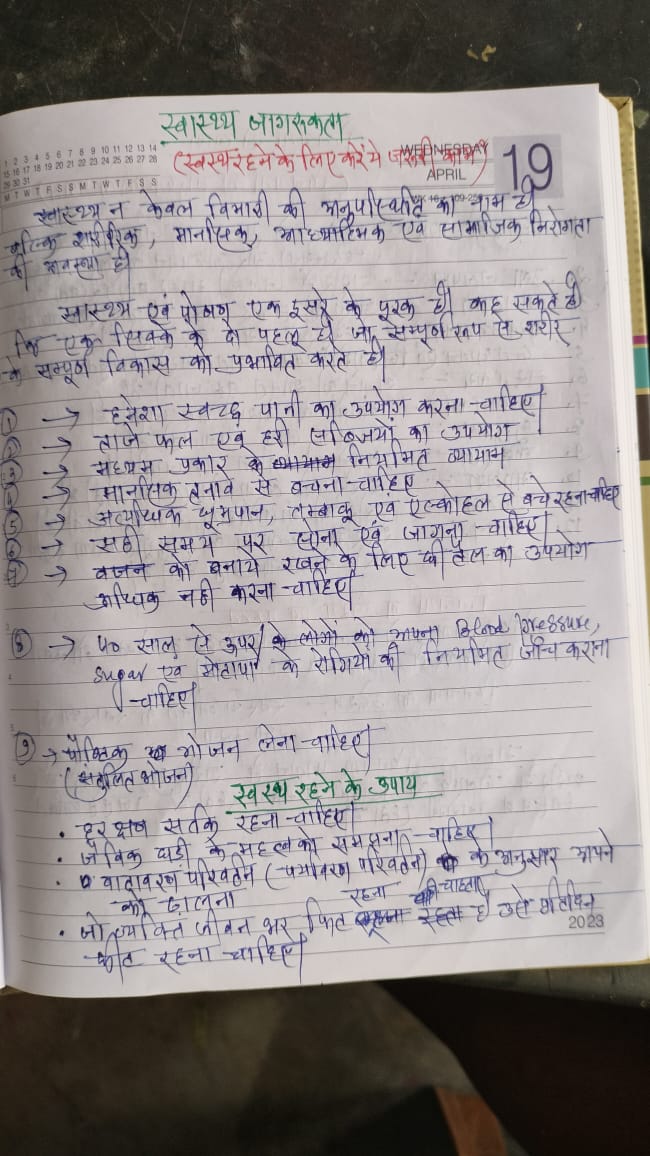 स्वास्थ्य जागरूकता
1 2 3 4 5 6 7 8 9 10 11 12 13 14
15 16 17 18 19 20 21 22 23 24 25 26 27 28
29 30 31
M T W T F S S M T W T F S S
WEDNESDAY
APRIL
19
(स्वस्थ रहने के लिए करें ये जरूरी काम)
स्वास्थ्य न केवल बिमारी की अनुपस्थिति का नाम है।
बल्कि शारीरिक, मानसिक, आध्यात्मिक एवं सामाजिक निरोगता
की अवस्था है।
स्वास्थ्य एवं पोषण एक दुसरे के पूरक है। कह सकते है।
कि एक सिक्के के दो पहलू है। जो सम्पूर्ण रूप से शरीर
के सम्पूर्ण विकास को प्रभावित करते है।
1 → हमेशा स्वच्छ पानी का उपयोग करना चाहिए।
2 → ताजे फल एवं हरी सब्जियों का उपयोग
3 → मध्यम प्रकार के नियमित व्यायाम
4 → मानसिक तनाव से बचना चाहिए
5 → अत्यधिक धूम्रपान, तम्बाकू एवं एल्कोहल से बचे रहना चाहिए
6 → सही समय पर सोना एवं जागना चाहिए।
7 → वजन को बनाये रखने के लिए घी तेल का उपयोग
अधिक नही करना चाहिए।
8 → 40 साल से ऊपर के लोगों को अपना Blood pressure,
sugar एवं मोतापा के रोगियों की नियमित जाँच कराना
चाहिए।
9 → पौष्टिक भोजन लेना चाहिए।
(संतुलित भोजन)
स्वस्थ रहने के उपाय
• हर क्षण सर्तक रहना चाहिए।
• जैविक घड़ी के महत्व को समझना चाहिए।
• वातावरण परिवर्तन (पर्यावरण परिवर्तन) के अनुसार अपने
को ढालना
• जो व्यक्ति जीवन भर फिट रहना चाहता है उसे प्रतिदिन
फीट रहना चाहिए।
2023